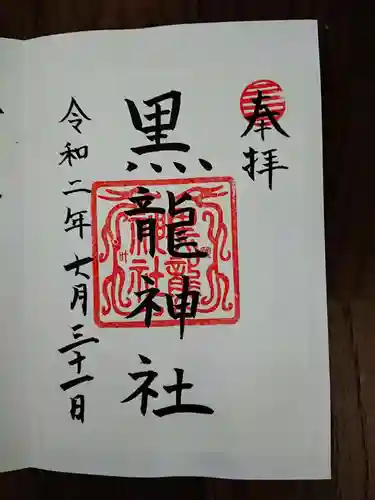 奉拝
黒龍神社
令和二年 月三十一日